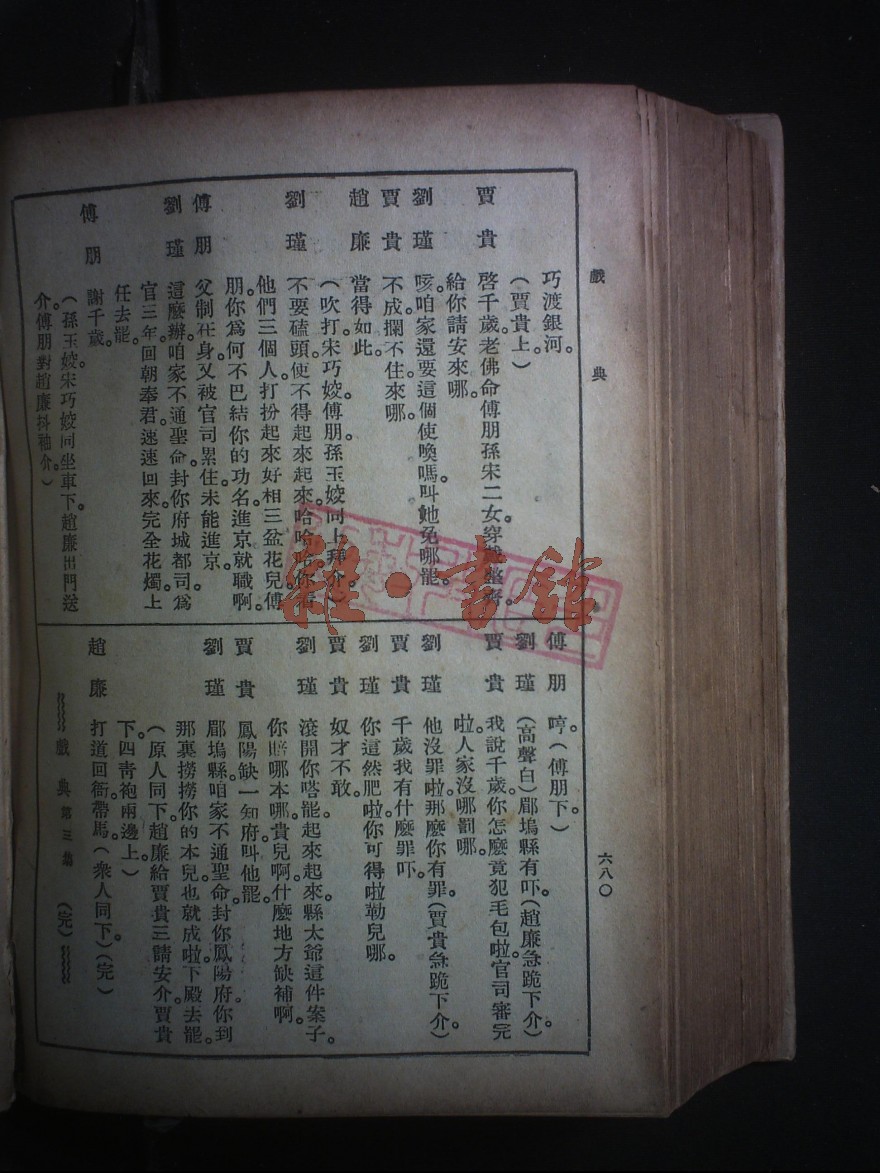 戲典
六八〇
巧渡銀河。
（賈貴上。）
賈貴 啓千歲老佛命傅朋孫宋二女穿戴整齊。
給你請安來哪。
劉瑾 咳咱家還要這個使喚嗎。叫她免哪罷。
賈貴 不成攔不住來哪。
趙廉 當得如此。
（吹打宋巧姣。傅朋。孫玉姣同上拜介。）
劉瑾 不要磕頭。使不得起來起來。哈哈哈。你看
他們三個人。打扮起來好相三盆花兒。傅
朋。你爲何不巴結你的功名。進京就職啊。
傅朋 父制在身。又被官司累住。未能進京。
劉瑾 這麼辦。咱家不通聖命。封你府城都司爲
官三年。回朝奉君。速速回來。完全花燭。上
任去罷。
傅朋 謝千歲。
（孫玉姣宋巧姣同坐車下。趙廉出門送
介。傅朋對趙廉抖袖介。）
傅朋 哼。（傅朋下）
劉瑾 （高聲白）郿塢縣有吓。（趙廉急跪下介）
賈貴 我說千歲。你怎麼竟犯毛包啦。官司審完
啦。人家沒哪罰哪。
劉瑾 他沒罪啦。那麼你有罪。（賈貴急跪下介）
賈貴 千歲我有什麼罪吓。
劉瑾 你這然肥啦。你可得啦勒兒哪。
賈貴 奴才不敢。
劉瑾 滾開你嗒罷。起來起來。縣太爺這件案子。
你賠哪本哪。貴兒啊。什麼地方缺補啊。
賈貴 鳳陽缺一知府。叫他罷。
劉瑾 郿塢縣。咱家不通聖命。封你鳳陽府。你到
那裏撈撈你的本兒。也就成啦。下殿去罷。
（原人同下。趙廉給賈貴三請安介。賈貴
下。四青袍兩邊上。）
趙廉 打道回衙。帶馬。（衆人同下。）（完）
戲典 第三集 （完）
雜·書館